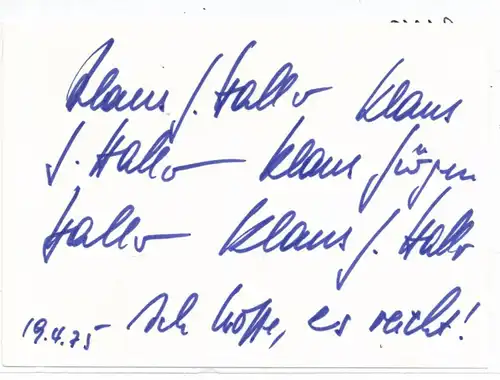 Klaus J. Hallo Klaus
J. Hallo Klaus Jürgen
Hallo Klaus J. Hallo
19.4.75 Ich hoffe, es reicht!